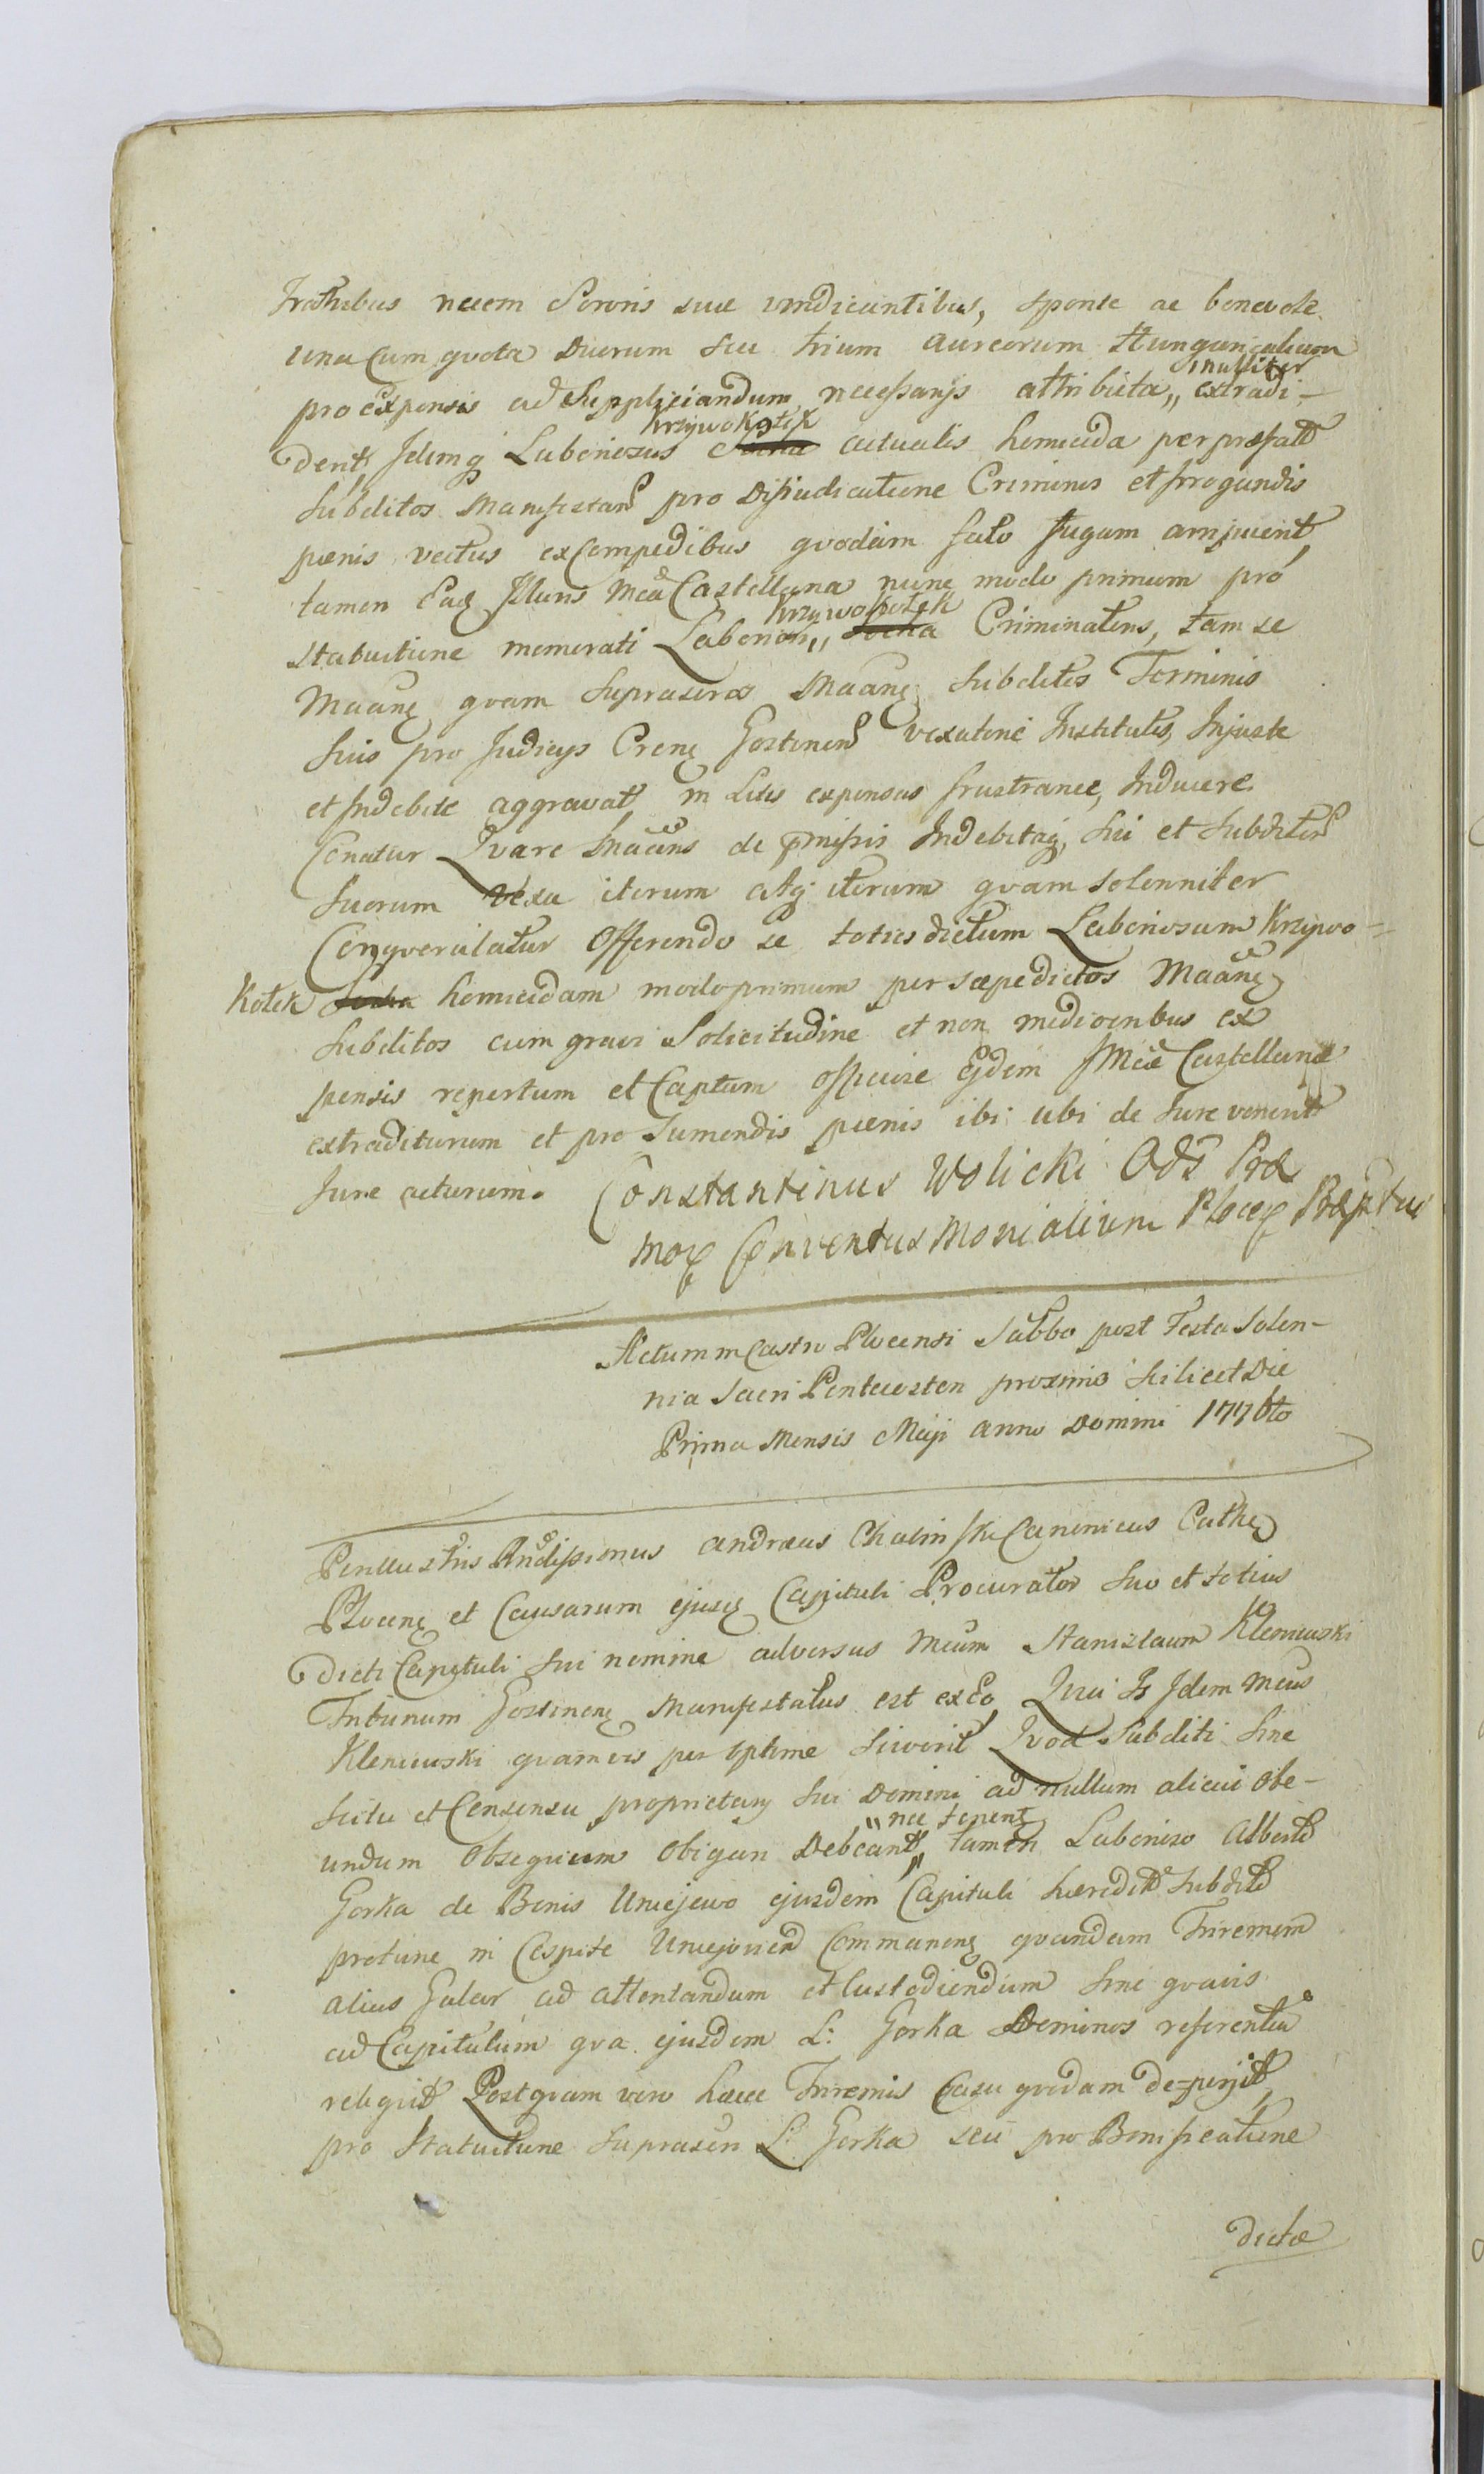 Fratribus necem Sororis suae vindicantibus, sponte ac benevole
una Cum quota Duorum seu trium aureorum Hungaricalium
pro expensis ad Suppliciandum necessarijs attributa,, extradi-
nulliter
dent, Idemq Laboriosus actualis homicida per praefatt
Krzywokołek
subditos Manifestant pro Disiudicatione Criminis et irrogandis
paenis vectus ex Compedibus quodam fato fugam arripuerit,
tamen Eaq Illuris Mca Castellana nunc modo primum pro
statuitione memorati Laboriosi,, Criminatens, tam se
Krzywokołek
Maanq quam suprascros Maanq subditos Terminis
suis pro Judicijs Crenq Gostinen vexatorie Institutis, Injuste
et Indebite aggravat, in Litis expensas frustranee, Inducere
Conatur Quare Maans de pmissis Indebitaq, sui et subditor
suorum vexa iterum atq iterum quam solenniter
Conquerulatur Offerendo se toties dictum Laboriosum Krzywo=
kołek homicidam modo primum per saepedictos Maanq
subditos cum gravi Solicitudine et non mediocribus ex
pensis repertum et Captum officiose Ejdem IMcae Castellanae
extraditurum et pro sumendis paenis ibi ubi de Jure venerit
Jure acturum. Constantinus Wolicki Ods Prae
Conventus Monialium Plocq Praeptus
Actum in Castro Plocensi Sabbo post Festa Solen-
nia Sacri Pentecosten proximo scilicet Die
Prima Mensis Maji anno Domini 1776to
Perillustris Rndissimus andraeus Chalinski Canonicus Cathq
Plocenq et Causarum ejusq Capituli Procurator suo et totius
dicti Capituli sui nomine adversus Mcum Stanislaum Kleniewski
Tribunum Gostinenq Manifestatus est ex Eo, Quia Is Idem Mcus
Kleniewski quamvis per optime sciverit Quod Subditi sine
scitu et Consensu proprietarij sui Domini ad nullum alicui obe-
undum Obsequium Obigari Debeant,, tamen Laborioso Alberto
,, nec tenentq
Gorka de Bonis Uniejewo ejusdem Capituli haeredit subdito
protunc in Cespite Uniejovien Commoranq quandam Triremem
alias Galar ad attentandum et Custodiendum sine quavis
ad Capitulum qva ejusdem L: Gorka Dominos referentia
reliquit Postquam vero haec Triremis Casu quodam deperijt,
pro Statuitione suprascri L: Gorka seu pro Bonificatione
dictae